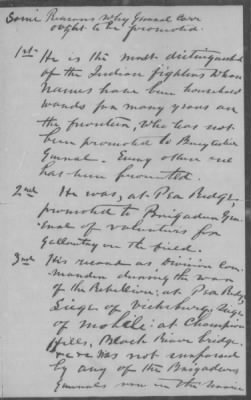 Some Reasons Why General Carr
ought to be promoted.
1st He is the most distinguished
of the Indian fighters whose
names have been household
words for many years on
the frontier, who has not
been promoted to Brigadier
General. Every other one
has been promoted.
2nd He was, at Pea Ridge,
promoted to Brigadier Gen-
eral of volunteers for
gallantry on the field.
3rd His record as Division Com-
mander during the war
of the Rebellion; at Pea Ridge,
Siege of Vicksburg, Siege
of Mobile: at Champion
Hills, Black River bridge
was not surpassed
by any of the Brigadier
Generals now in the